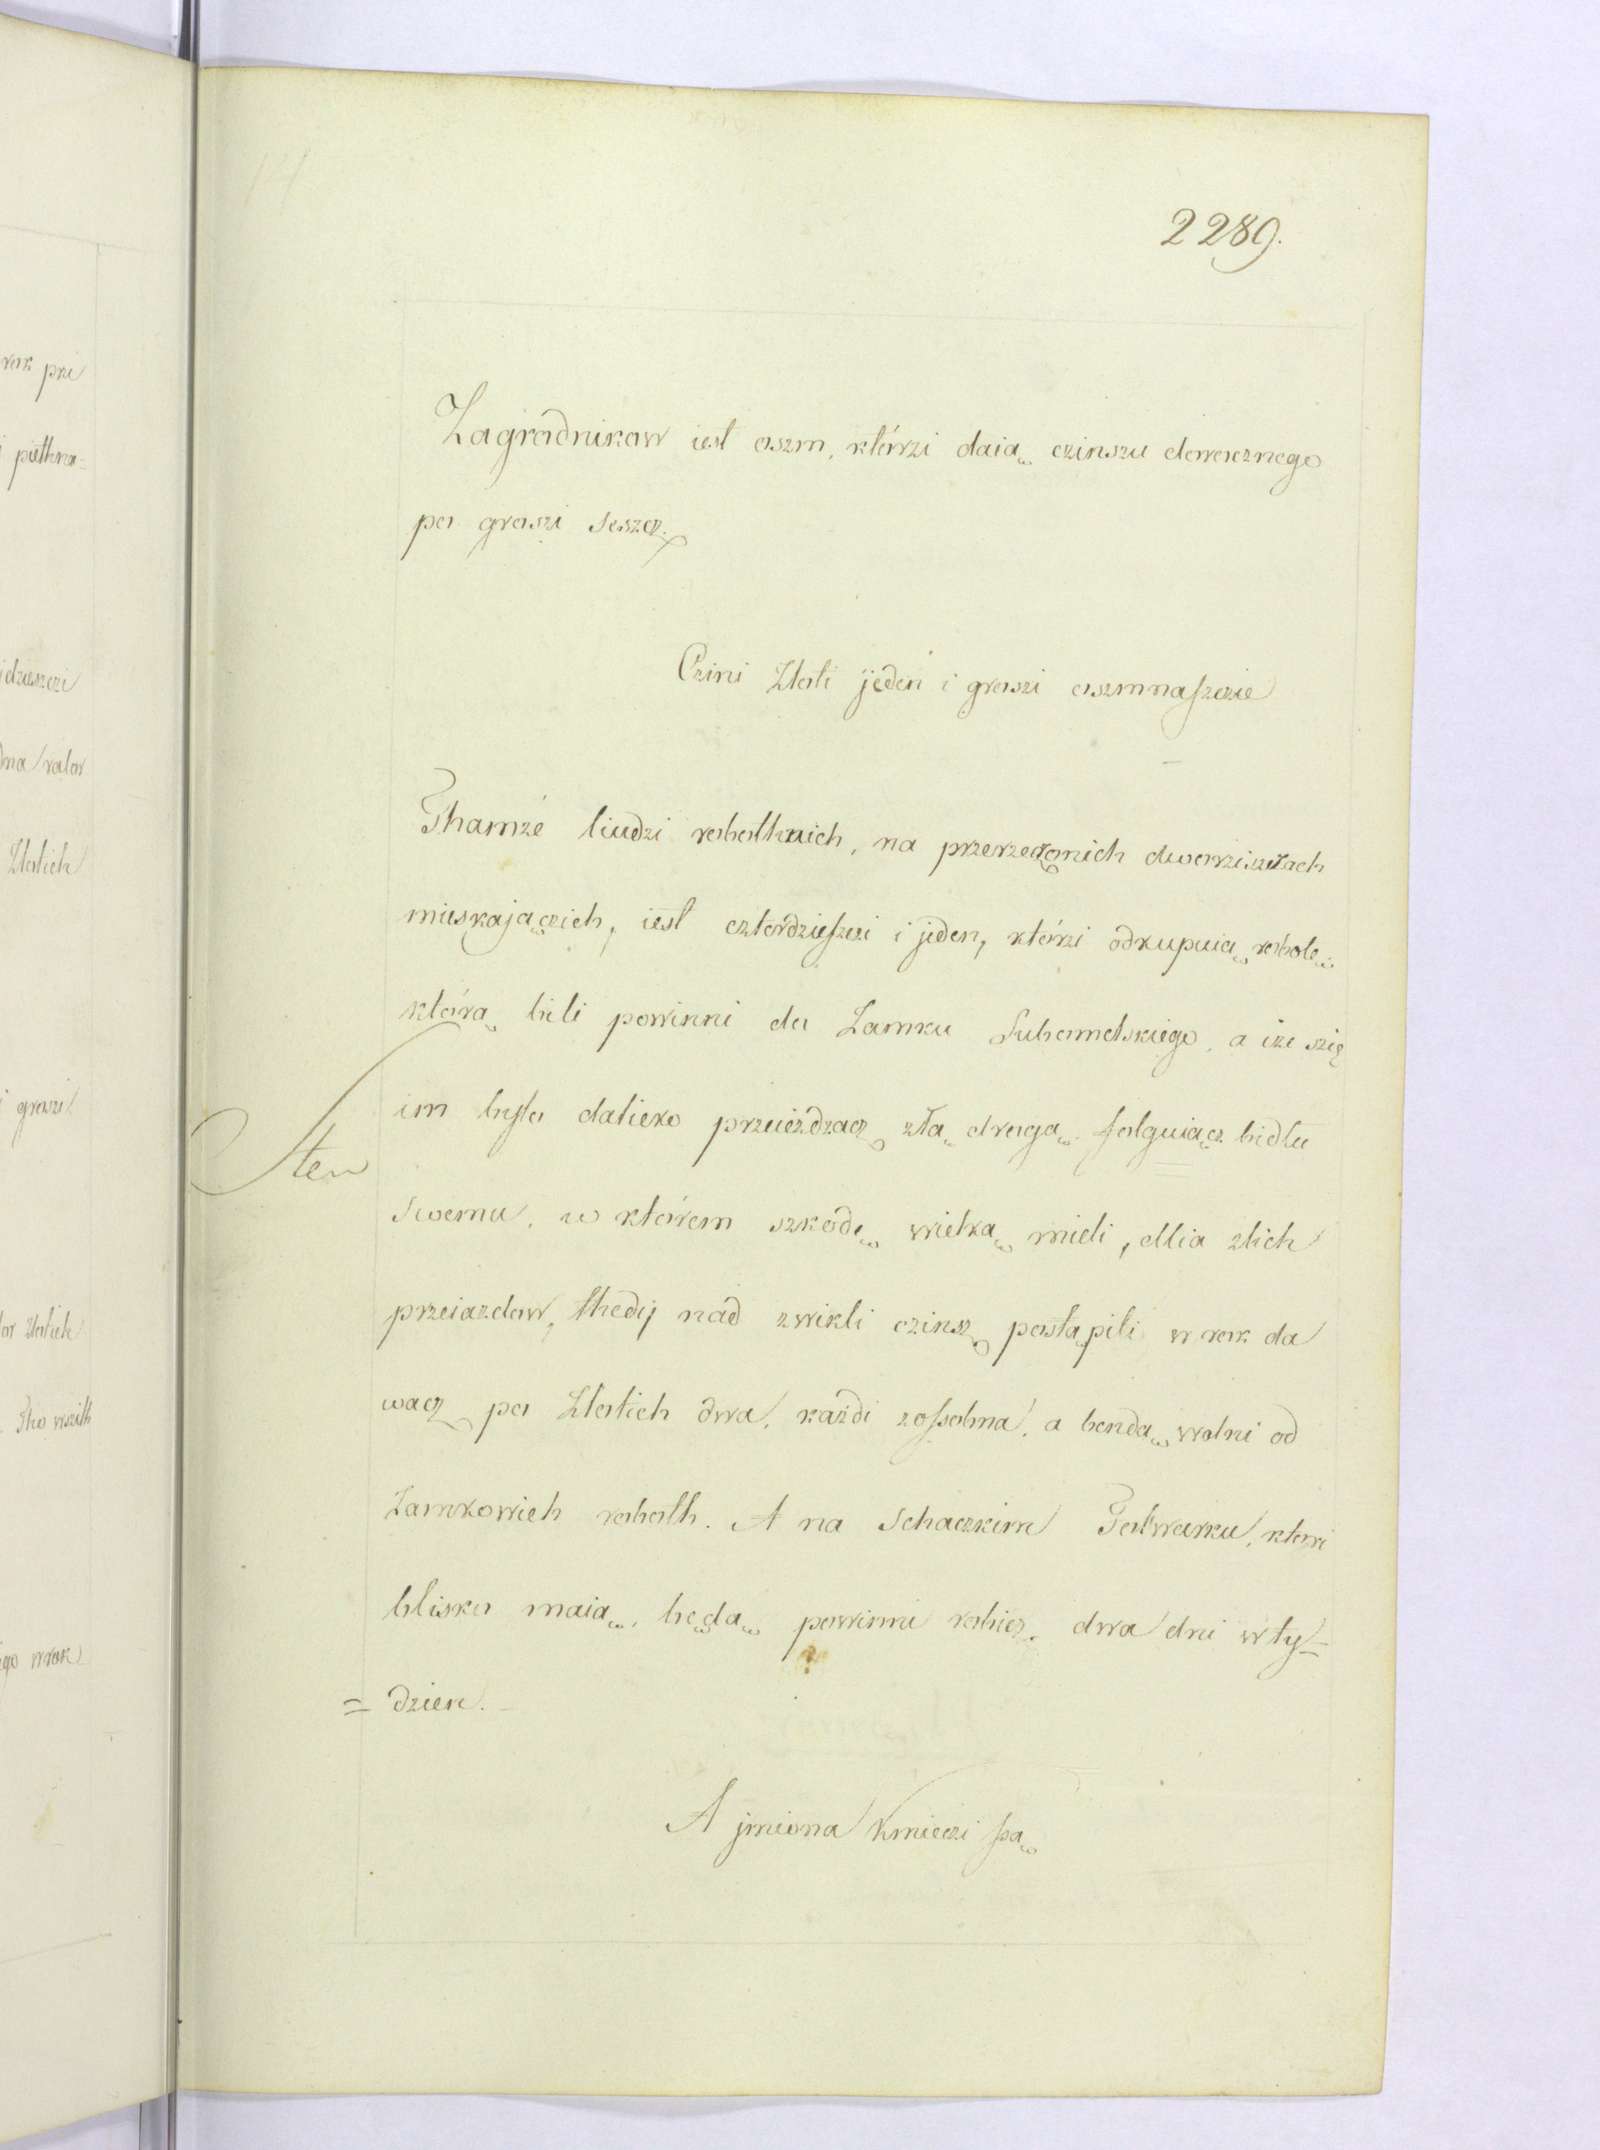 2289.
Zagrodnikow iest oszm, którzi daią czinszu dorocznego
po groszi szescz.
Czini Złoti jeden i groszi oszmnaszczie
Thamże liudzi robothnich, na przerzeczonich dworziszczach
mieskającich, iest czterdzieszci i jeden, którzi odkupuią robotę
którą bili powinni do Zamku Lubomelskiego, a iże szię
im było dalieko przeieżdzacz złą drogą, folguiącz bidłu
Sten
swemu, w którem szkodę wielką mieli, dlia zlich
przeiazdow, thedij nad zwikli czinsz postąpili w rok da
wacz po Złotich dwa, każdi zossobna, a benda wolni od
Zamkowich roboth. A na Schaczkim Folwarku, ktori
blisko maią, będą powinni robicz dwa dni w ty=
=dzien.
A jmiona Kmieczi są
rok pri
i piethna=
dna
Złotich
i groszi
Złotich
Tho wszith
ego wrok